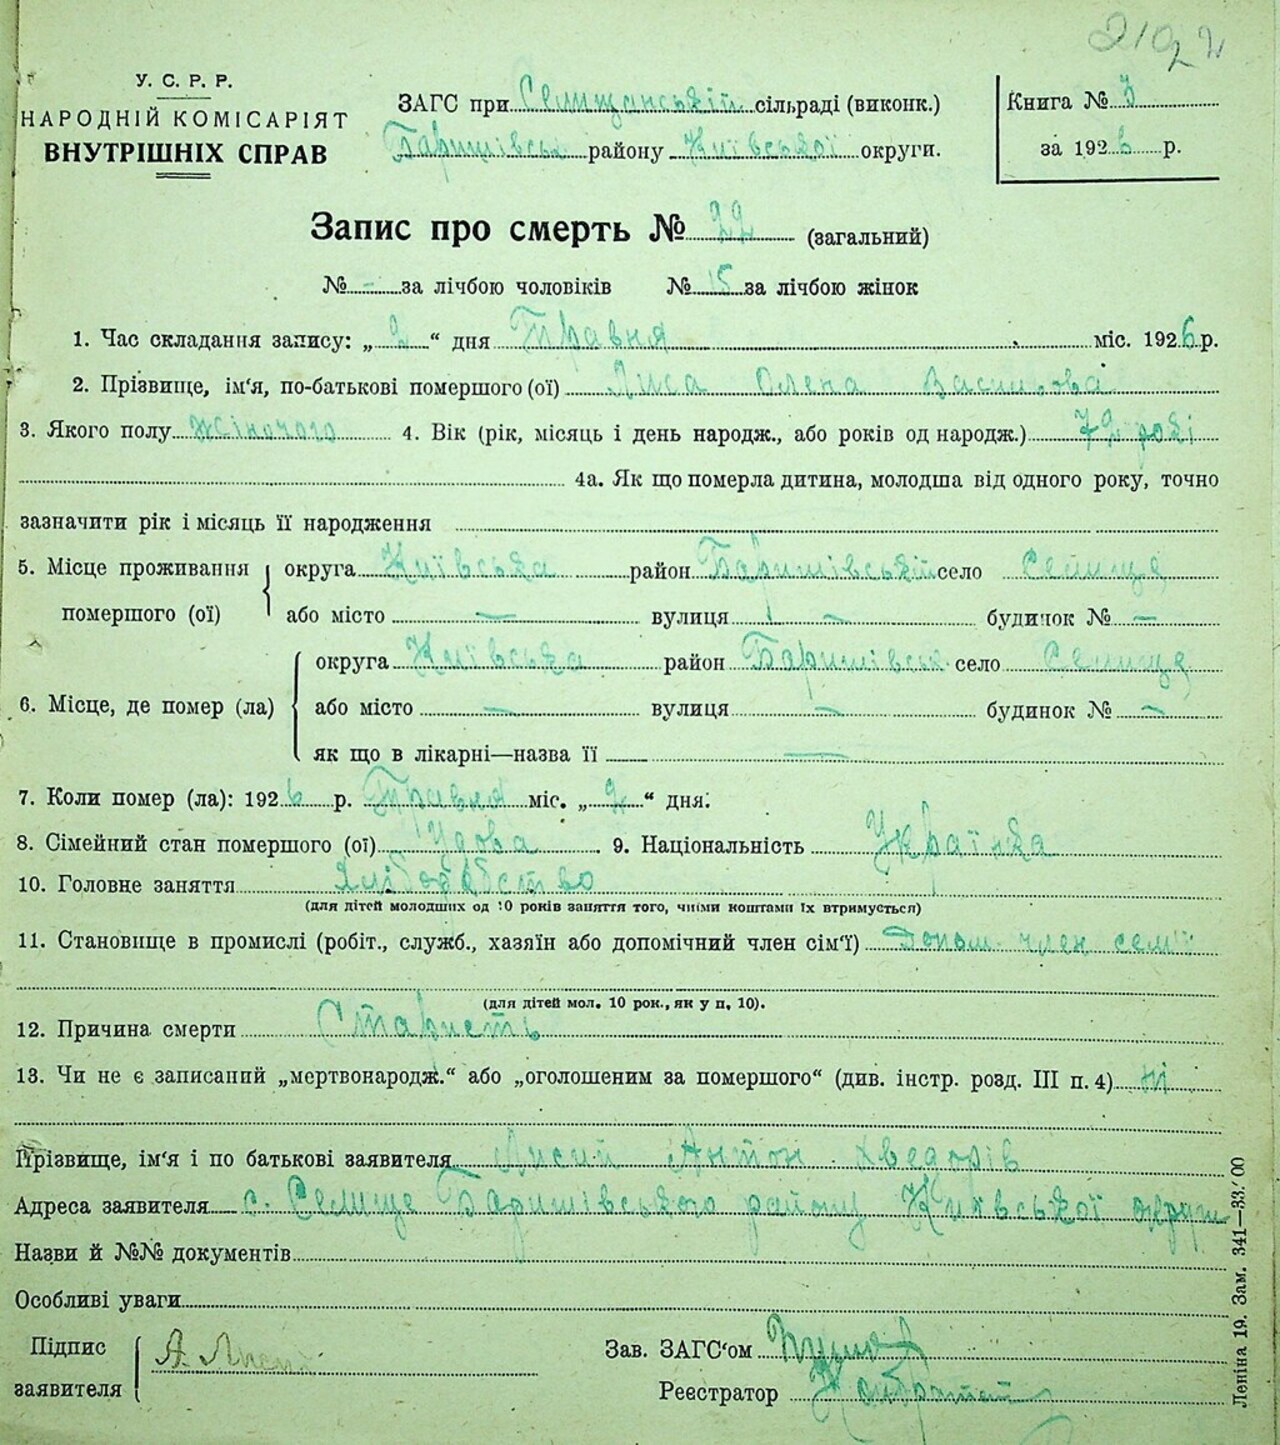 2192
У. С. Р. Р.
НАРОДНІЙ КОМІСАРІЯТ
ВНУТРІШНІХ СПРАВ
ЗАГС при Селищанській сільраді (виконк.)
Баришівськ району Київської округи.
Книга № 3
за 1926 р.
Запис про смерть № 22 (загальний)
№ - за лічбою чоловіків № 15 за лічбою жінок
1. Час складання запису: „2“ дня Травня міс. 1926 р.
2. Прізвище, ім'я, по-батькові помершого (ої) Лиса Олена Василова
3. Якого полу жіночого 4. Вік (рік, місяць і день народж., або років од народж.) 72 років
4а. Як що померла дитина, молодша від одного року, точно
зазначити рік і місяць її народження
5. Місце проживання помершого (ої) округа Київська район Баришівський село Селище
або місто — вулиця — будинок № —
6. Місце, де помер (ла) округа Київська район Баришівськ село Селище
або місто — вулиця — будинок № —
як що в лікарні—назва її —
7. Коли помер (ла): 1926 р. Травня міс. „2“ дня.
8. Сімейний стан помершого (ої) Удова 9. Національність Українка
10. Головне заняття Хліборобство
(для дітей молодших од 10 років заняття того, чиїми коштами їх втримується)
11. Становище в промислі (робіт., служб., хазяїн або допомічний член сім'ї) Допом. член сем'ї
(для дітей мол. 10 рок., як у п. 10).
12. Причина смерти Старисть
13. Чи не є записаний „мертвонародж.“ або „оголошеним за помершого“ (див. інстр. розд. III п. 4) ні
Прізвище, ім'я і по батькові заявителя Лисий Антон Хведорів
Адреса заявителя с. Селище Баришівського району Київської округи
Назви й №№ документів
Особливі уваги
Підпис заявителя А. Лисий
Зав. ЗАГС'ом
Реєстратор
Леніна 19. Зам. 341—33.